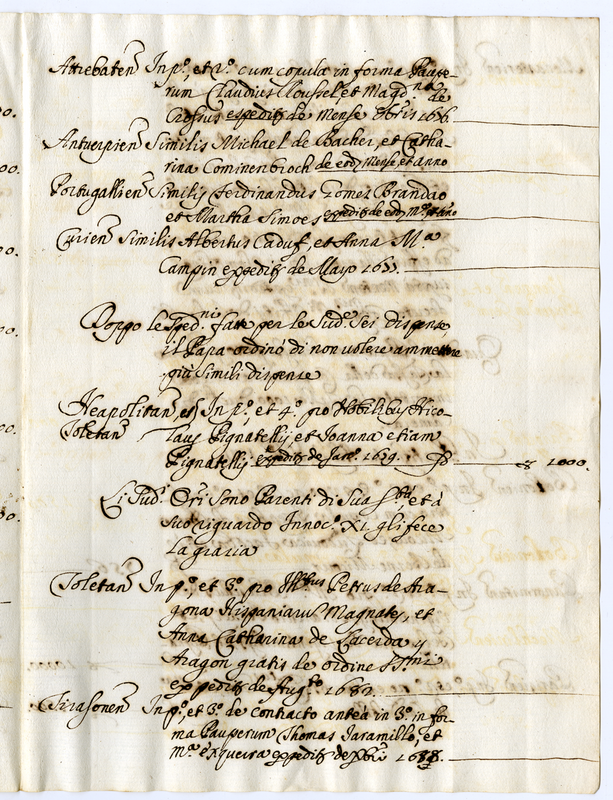 Attrebaten In p.º, et 2.º cum copula in forma Paupe-
rum Claudius Clousset, et Magd.na de
expedit de Mense 8bris 1656
Antuerpien Similis Michael de Backer, et Catha-
rina Cominenbroch de eod Mense, et anno
Portugallien Similis Ferdinandus Gomez Brandao
et Martha Simoes expedit de eod m.e, et año
Curien Similis Albertus Caduf, et Anna M.a
Campin expedit de Mayo 1655.
Doppo le Sped.ni fatte per le Sud.e Sei dispense
il Papa ordinò di non volere ammettere
più simili dispense
Neapolitan, et In p.º, et 4.º pro Nobilibus Nico-
Toletan laus Pignatellis, et Joanna etiam
Pignatellis expedit de Jan.º 1659. 1000.
Li Sud.i Ori sono Parenti di Sua S.tà, et à
suo riguardo Innoc.º XI. gli fece
la grazia
Toletan In p.º, et 3.º pro Ill.bus Petrus de Ara-
gona Hispaniarū Magnates, et
Anna Catharina de Lacerda y
Aragon gratis de ordine SS.mi
expedit de Aug.to 1680.
Tirasonen In p.º, et 3.º de contracto antea in 3.º in for-
ma Pauperum Thomas Jaramillo, et
m.a Exqueira expedit de Xbri